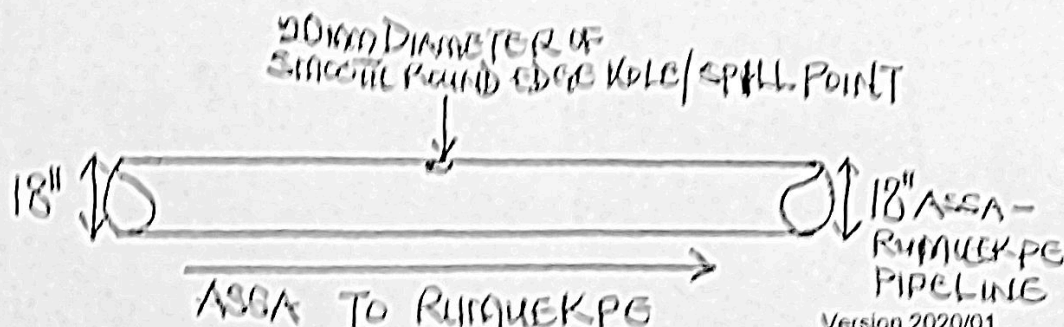 20mm DIAMETER OF
SMOOTH ROUND EDGE HOLE/SPILL POINT
18"
18" ASSA-
RUMUEKPE
PIPELINE
ASSA TO RUMUEKPE
Version 2020/01